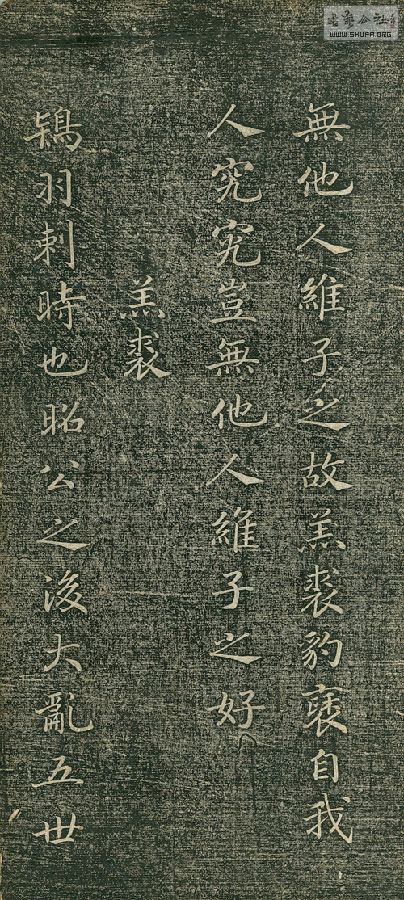 無他人維子之故羔裘豹褎自我
人究究豈無他人維子之好
羔裘
鴇羽刺時也昭公之後大亂五世
書藝公社
WWW.SHUFA.ORG